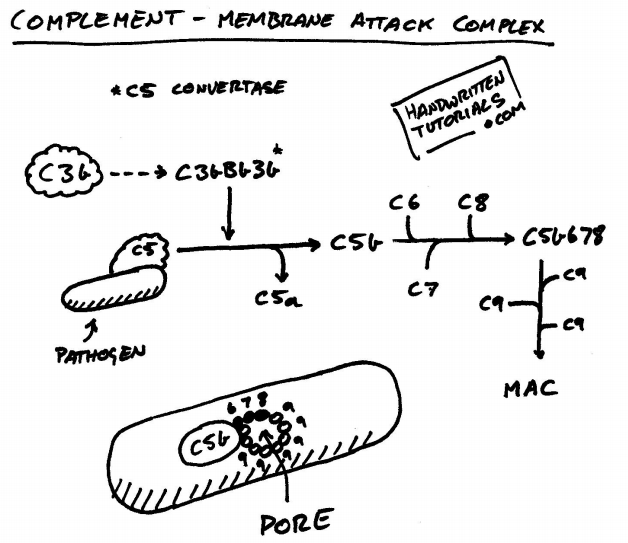 COMPLEMENT - MEMBRANE ATTACK COMPLEX
*C5 CONVERTASE
HANDWRITTEN
TUTORIALS
.COM
C3b
C3bBb3b*
C5
C5b
C6
C8
C7
C5b678
C5a
C9
C9
C9
PATHOGEN
MAC
6 7 8 9
9
9
9
9
9
C5b
PORE